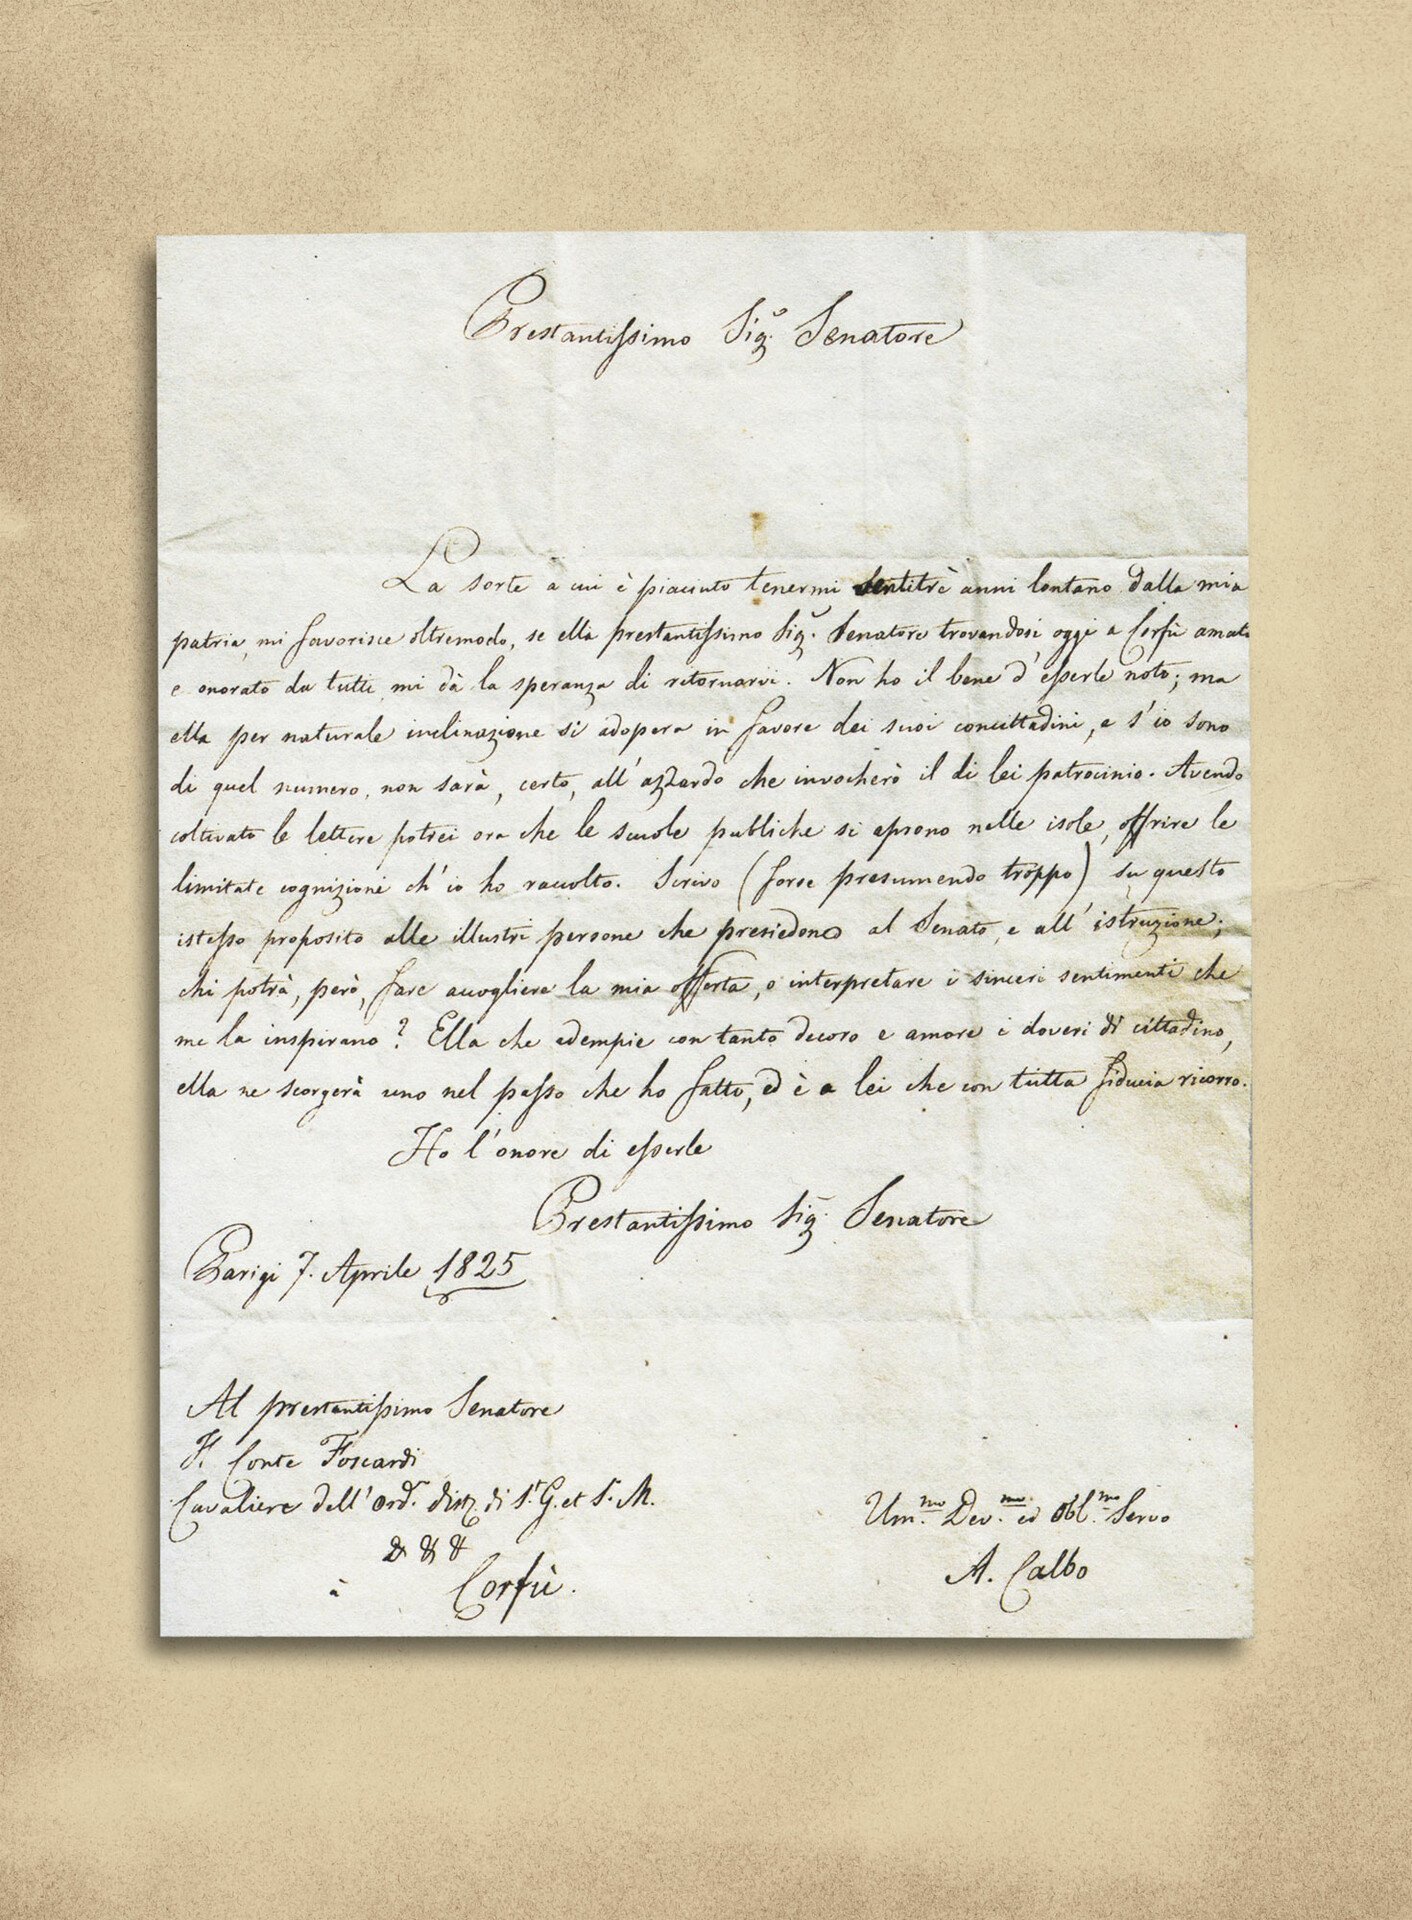 Prestantissimo Sigr. Senatore
La sorte a cui è piaciuto tenermi ventitrè anni lontano dalla mia
patria, mi favorisce oltremodo, se ella prestantissimo Sigr. Senatore trovandosi oggi a Corfù amato
e onorato da tutti, mi dà la speranza di ritornarvi. Non ho il bene d'esserle noto; ma
ella per naturale inclinazione si adopera in favore dei suoi concittadini, e s'io sono
di quel numero, non sarà, certo, all'azzardo che invocherò il di lei patrocinio. Avendo
coltivato le lettere potrei ora che le scuole publiche si aprono nelle isole, offrire le
limitate cognizioni ch'io ho raccolto. Scrivo (forse presumendo troppo) su questo
istesso proposito alle illustri persone che presiedono al Senato, e all'istruzione;
chi potrà, però, fare accogliere la mia offerta, o interpretare i sinceri sentimenti che
me la inspirano? Ella che adempie con tanto decoro e amore i doveri di cittadino,
ella ne scorgerà uno nel passo che ho fatto, ed è a lei che con tutta fiducia ricorro.
Ho l'onore di esserle
Prestantissimo Sigr. Senatore
Parigi 7. Aprile 1825
Al prestantissimo Senatore
F. Conte Foscardi
Cavaliere dell'Ord.e dist. di S.t G. et S.t M.
& & &
à Corfù.
Um.mo Dev.mo ed Obl.mo Servo
A. Calbo